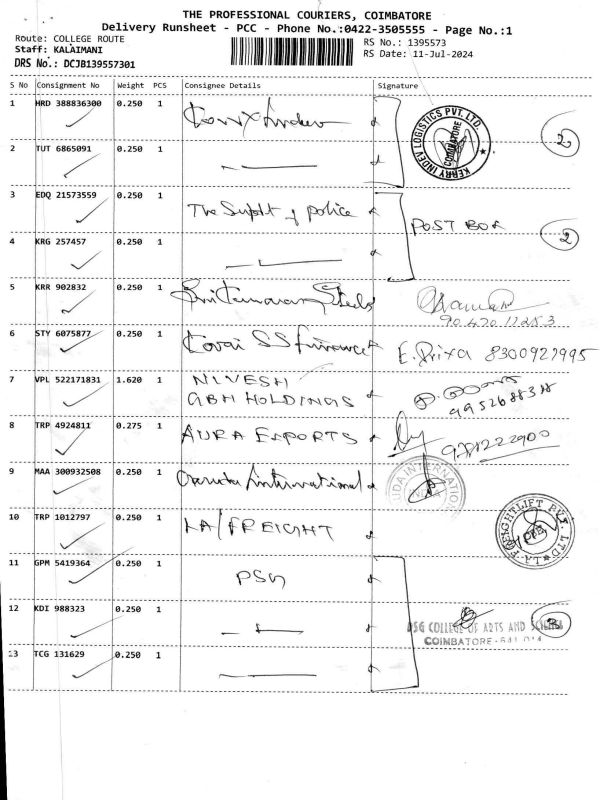 THE PROFESSIONAL COURIERS, COIMBATORE
Delivery Runsheet - PCC - Phone No.:0422-3505555 - Page No.:1
Route: COLLEGE ROUTE RS No.: 1395573
Staff: KALAIMANI RS Date: 11-Jul-2024
DRS No.: DCJB139557301
S No Consignment No Weight PCS Consignee Details Signature
1 HRD 388836300 0.250 1 2
KERRY INDEV LOGISTICS PVT. LTD.
COIMBATORE
2 TUT 6865091 0.250 1
3 EDQ 21573559 0.250 1 The Supdt of police
POST BOX 2
4 KRG 257457 0.250 1
5 KRR 902832 0.250 1 Steels
6 STY 6075877 0.250 1 Kovai SS Furnance E. Priya 8300927995
7 VPL 522171831 1.620 1 NIVESH
GBH HOLDINGS
8 TRP 4924811 0.275 1 AURA EXPORTS
9 MAA 300932508 0.250 1 Garuda International
10 TRP 1012797 0.250 1 LA/FREIGHT
LA FREIGHTLIFT PVT. LTD
CBE
11 GPM 5419364 0.250 1 PSG
12 KDI 988323 0.250 1 PSG COLLEGE OF ARTS AND SCIENCE 3
COIMBATORE-641 014
13 TCG 131629 0.250 1